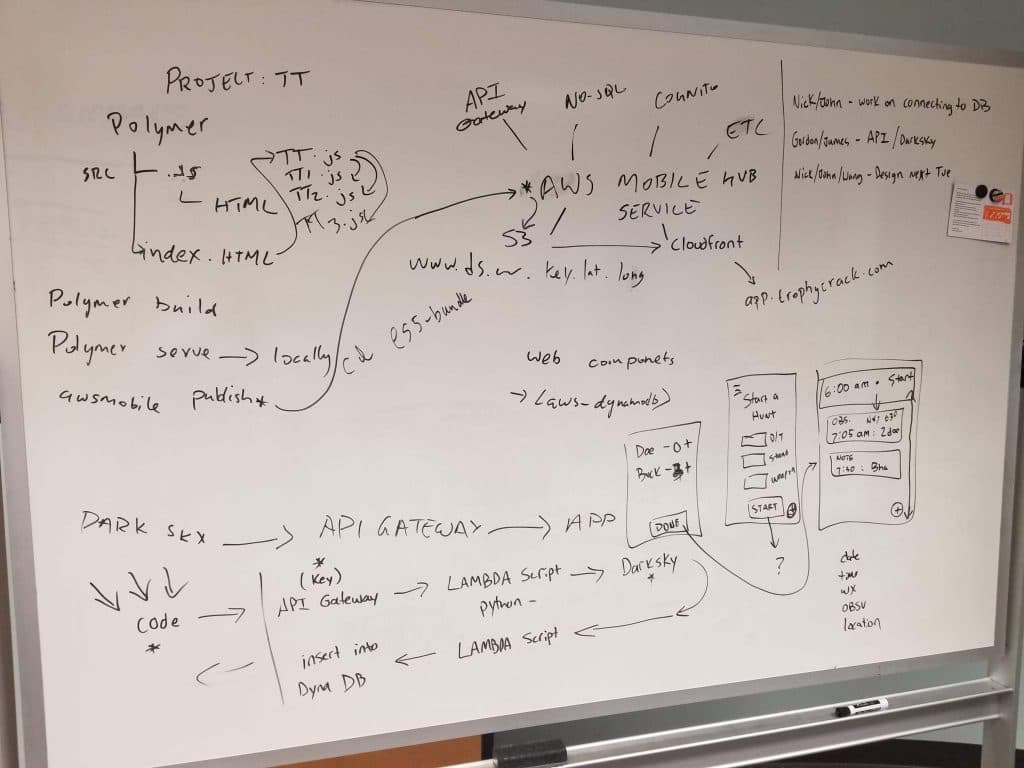 PROJECT: TT
Polymer
SRC
.JS
HTML
index.HTML
TT.js
TT1.js
TT2.js
TT3.js
Polymer build
Polymer serve → locally
awsmobile publish*
cd es5-bundle
API Gateway
NO-SQL
COGNITO
ETC
*AWS MOBILE HUB
SERVICE
S3 → Cloudfront
key.lat.long
app.trophycrack.com
Nick/John - work on connecting to DB
Gordon/James - API/Darksky
Nick/John/Wang - Design next Tue
web componets
→ <aws-dynamodb>
Doe - 0 +
Buck - 3 +
DONE
Start a
Hunt
D/T
Stand
START
?
6:00 am • Start
OBS.
7:05 am: 2doe
NOTE
7:40 :
date
time
WX
OBSV
location
DARK SKY → API GATEWAY → APP
code
*
→
*
(key)
API Gateway → LAMBDA Script → Darksky
*
python -
LAMBDA Script
insert into
Dyna DB